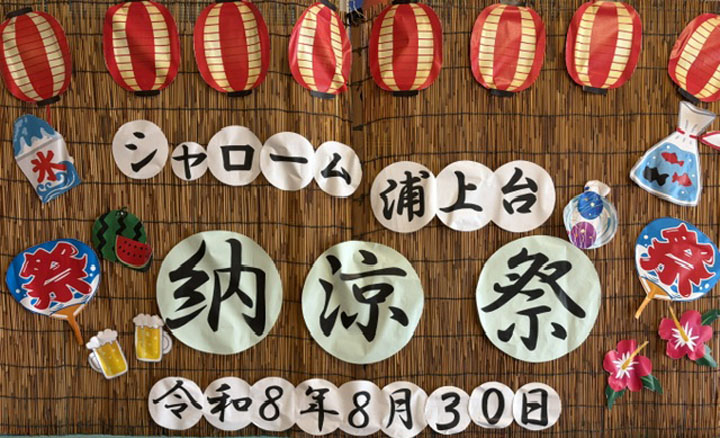 シャローム
浦上台
氷
納涼祭
祭
祭
令和8年8月30日